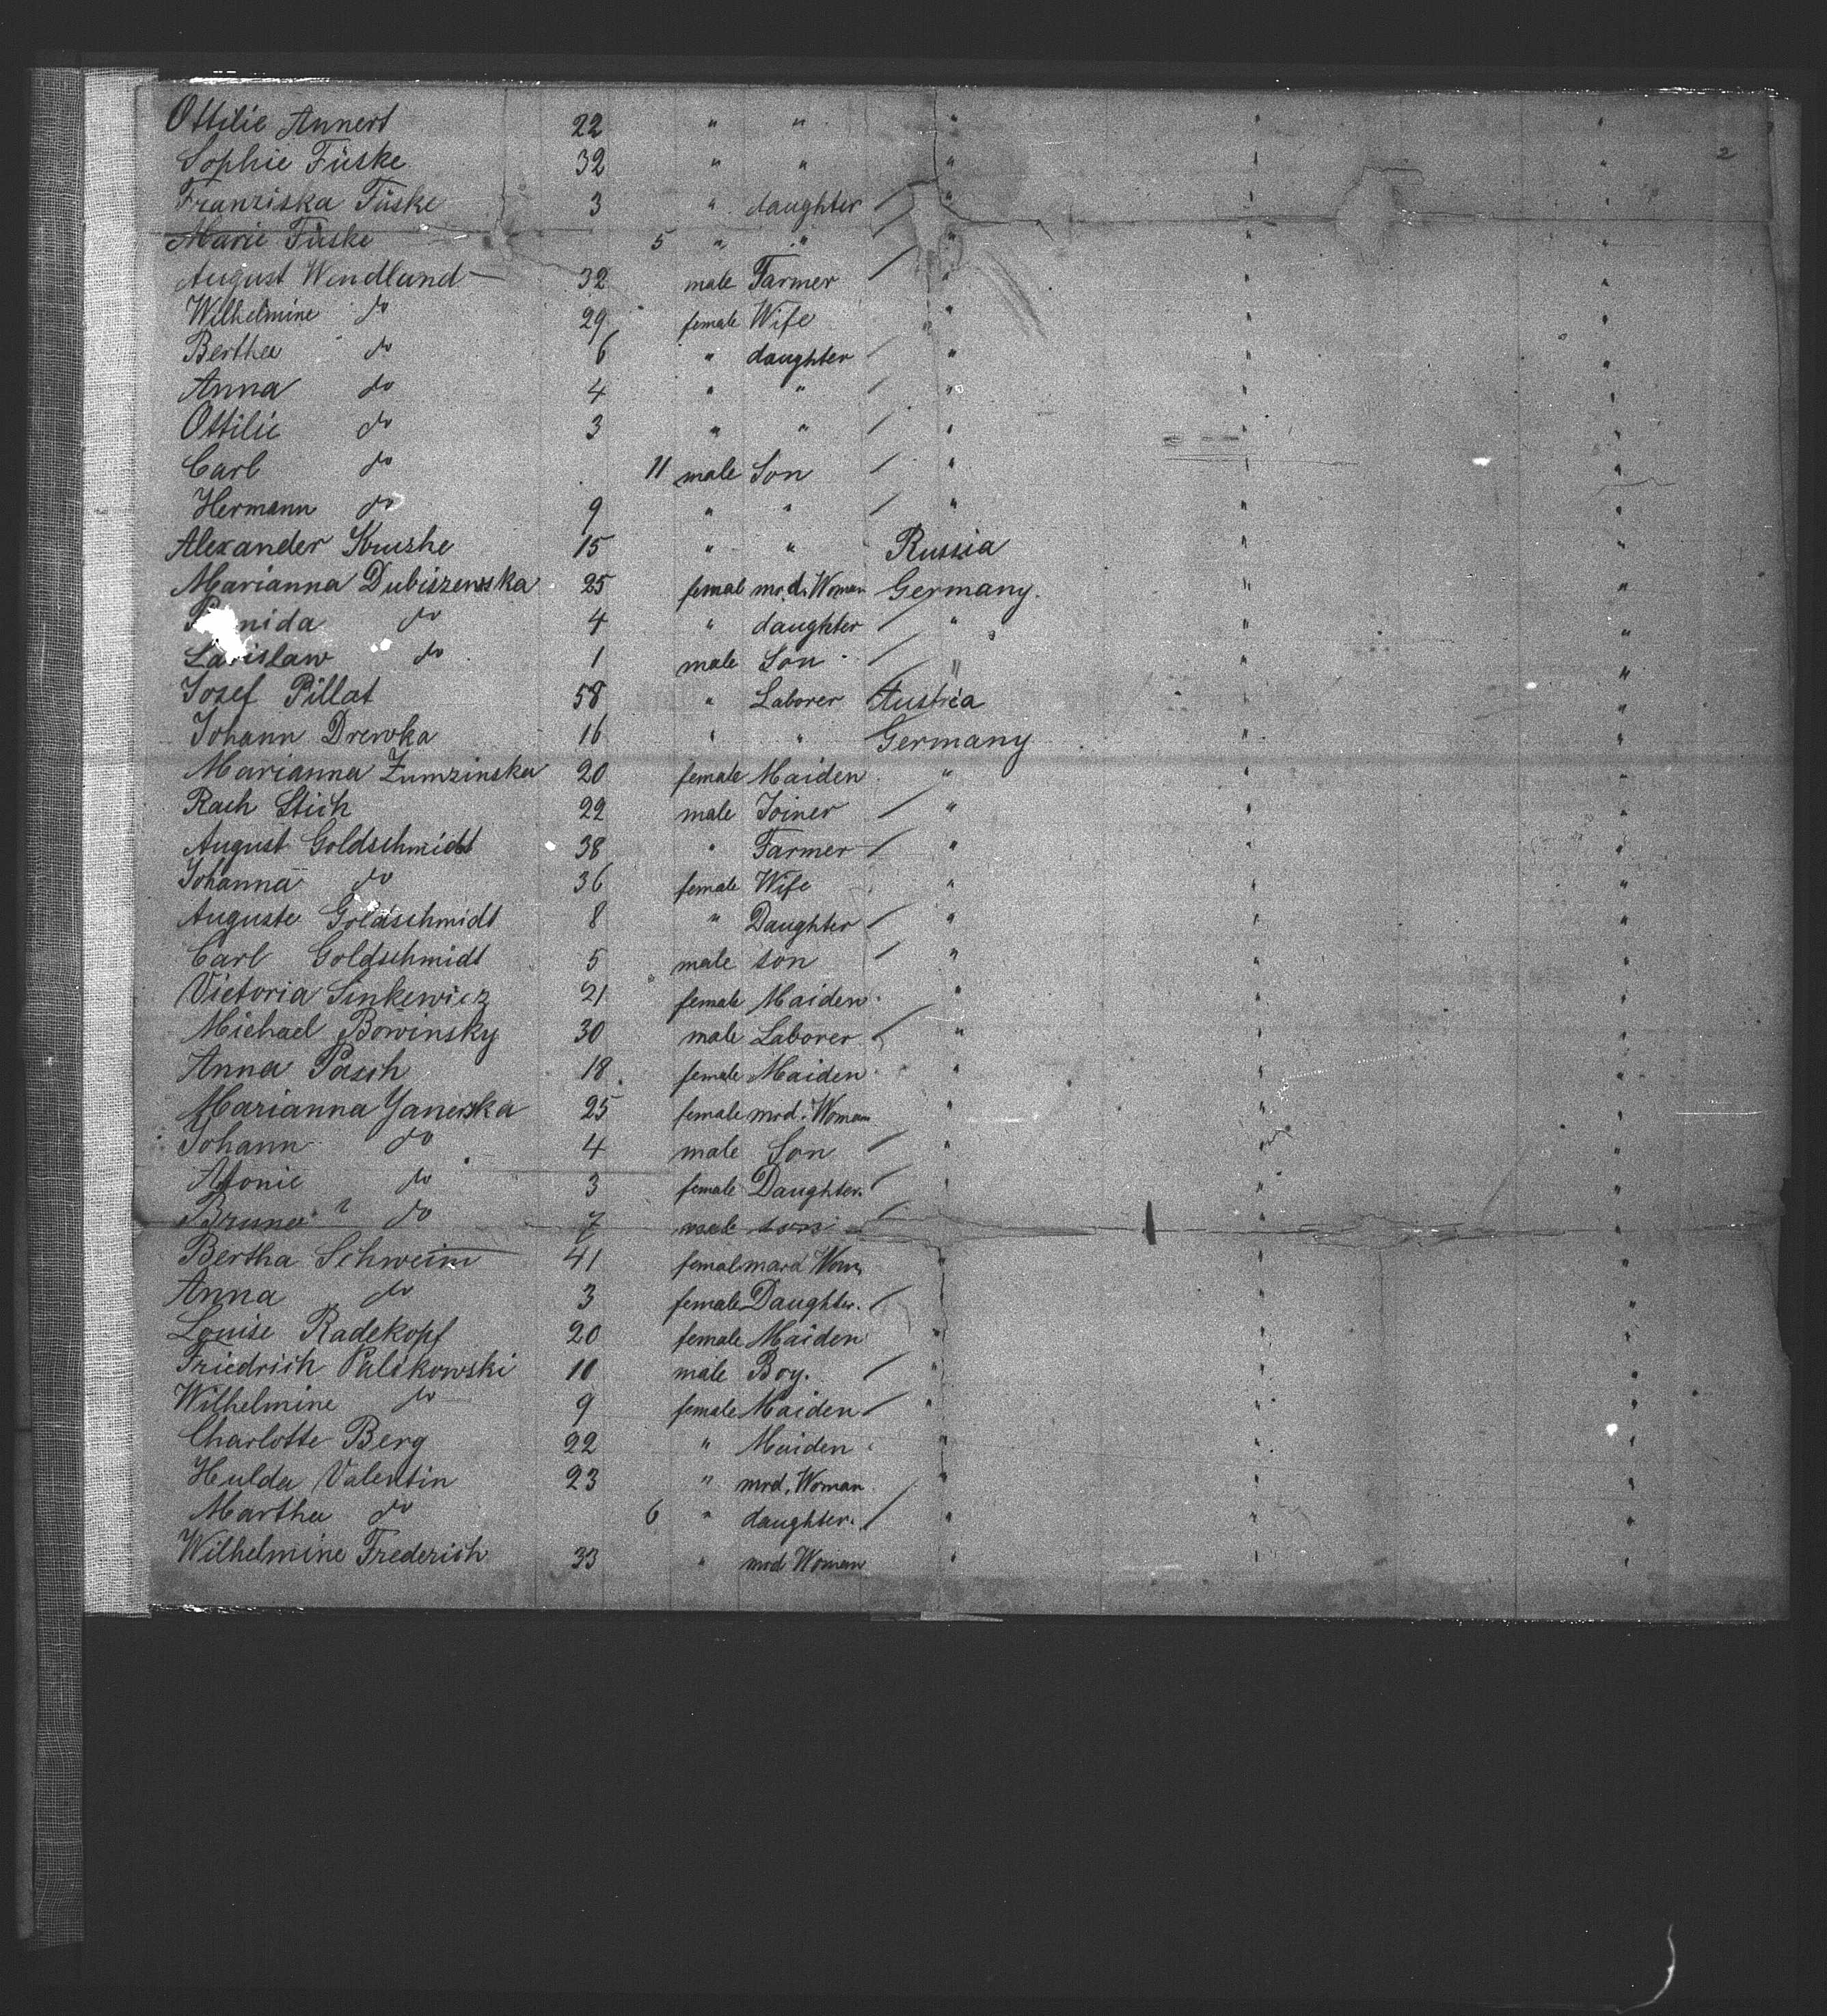 Ottilie Annert 22 " " " " "
Sophie Füske 32 " " " " " 2
Franziska Füske 3 " daughter / " " "
Marie Füske 5 " " / " " "
August Wendland 32 male Farmer / " " "
Wilhelmine do 29 female Wife " " "
Bertha do 6 " daughter / " " "
Anna do 4 " " / " " "
Ottilie do 3 " " / " " "
Carl do 11 male Son / " " "
Hermann do 9 " " / " " "
Alexander Krushe 15 " " Russia " "
Marianna Dubiszewska 25 femal mrd. Woman Germany. " "
nida do 4 " daughter / " " "
Ladislaw do 1 male Son / " " "
Josef Pillat 58 " Laborer Austria " "
Johann Drewka 16 " " Germany " "
Marianna Zumzinska 20 female Maiden " " "
Rach Stich 22 male Joiner / " " "
August Goldschmidt 38 " Farmer / " " "
Johanna do 36 female Wife " " "
Auguste Goldschmidt 8 " Daughter / " " "
Carl Goldschmidt 5 male son / " " "
Victoria Sinkewicz 21 female Maiden " " "
Michael Bowinsky 30 male Laborer / " " "
Anna Pasch 18 female Maiden " " "
Marianna Yanerska 25 female mrd. Woman " " "
Johann do 4 male Son / " " "
Atonie do 3 female Daughter. / " " "
Bruno do 7 male son / " "
Bertha Schweim 41 femal mard Wom " " "
Anna do 3 female Daughter. / " "
Louise Radekopf 20 female Maiden " " "
Friedrich Palikowski 10 male Boy. / " " "
Wilhelmine do 9 female Maiden / " " "
Charlotte Berg 22 " Maiden " " "
Hulda Valentin 23 " mrd. Woman " " "
Martha do 6 " daughter. / " " "
Wilhelmine Frederich 33 " mrd Woman " " "